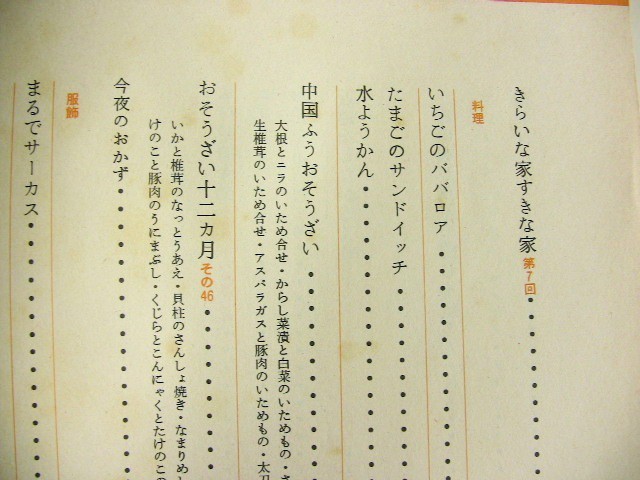 きらいな家すきな家 第7回
料理
いちごのババロア
たまごのサンドイッチ
水ようかん
中国ふうおそうざい
大根とニラのいため合せ・からし菜漬と白菜のいためもの・さ
生椎茸のいため合せ・アスパラガスと豚肉のいためもの・太刀
おそうざい十二カ月 その46
いかと椎茸のなっとうあえ・貝柱のさんしょ焼き・なまりめし
けのこと豚肉のうにまぶし・くじらとこんにゃくとたけのこの
今夜のおかず
服飾
まるでサーカス